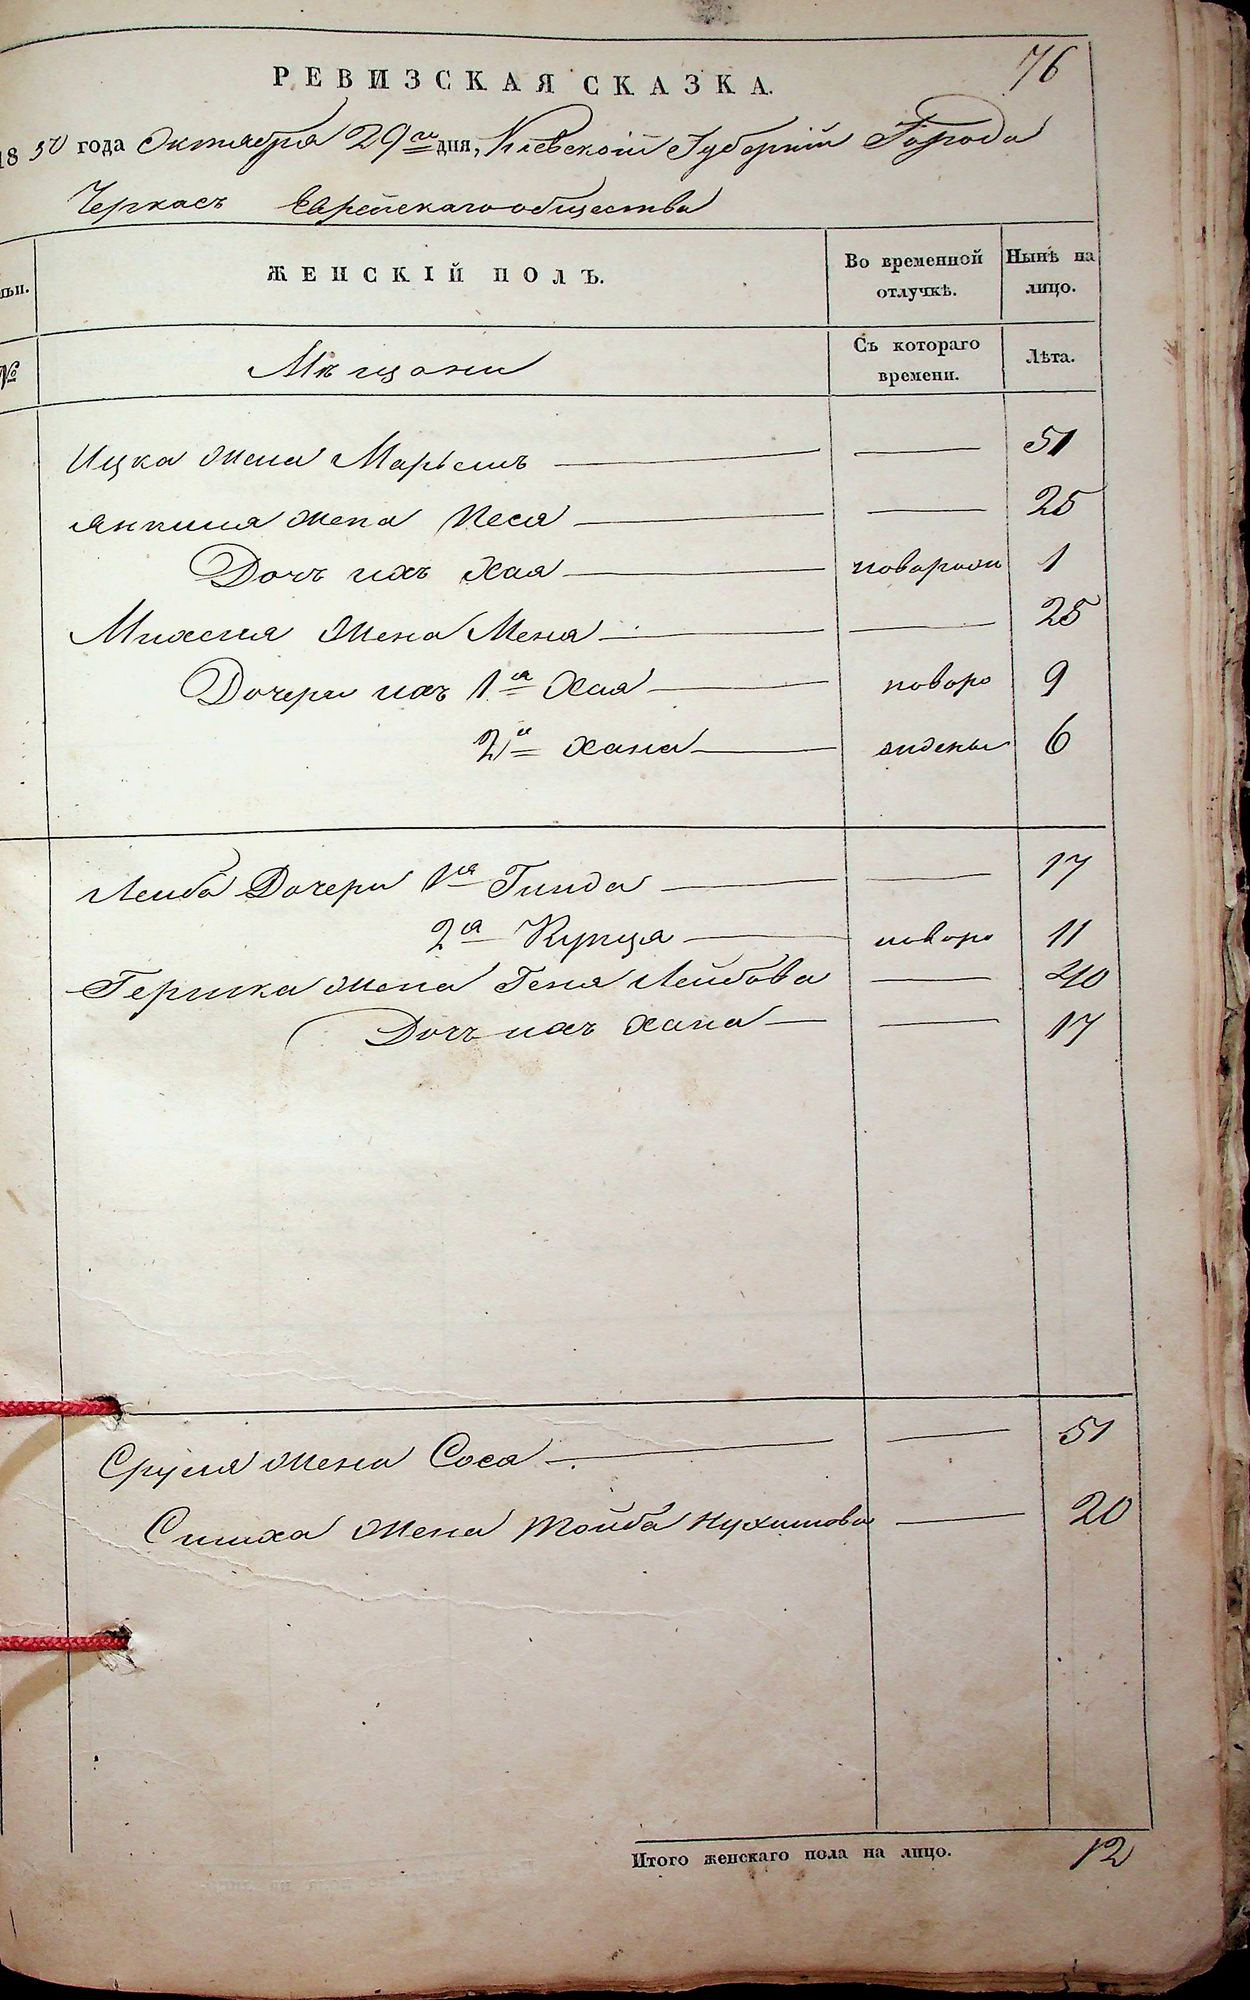 76
РЕВИЗСКАЯ СКАЗКА.
1850 года Октября 29го дня, Кіевской Губерніи Города
Черкасъ Еврейскаго общества
ЖЕНСКІЙ ПОЛЪ.
Во временной отлучкѣ.
Нынѣ на лицо.
№
Мѣщани
Съ котораго времени.
Лѣта.
Ицка жена Марьемъ 51
Янкиля жена Песя 25
Дочъ ихъ Хая 1
Михеля жена Меня 25
Дочери ихъ 1я Хая поворо 9
2я Хана 6
Лейба Дочери 1я Гинда 17
2я Купця поворо 11
Гершка жена Геня Лейбова 40
Дочъ ихъ Хана 17
Сруля жена Сося 51
Симха жена Тойба Нухимова 20
Итого женскаго пола на лицо. 12